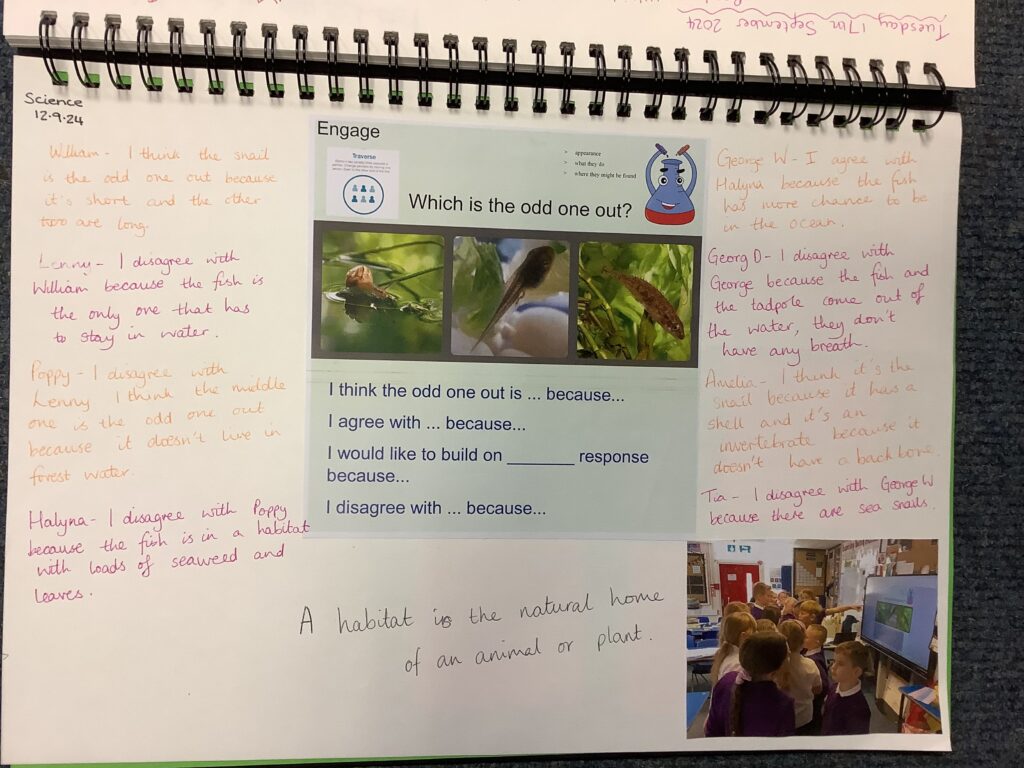 Tuesday 17th September 2024
Science
12.9.24
William - I think the snail
is the odd one out because
it's short and the other
two are long.
Lenny - I disagree with
William because the fish is
the only one that has
to stay in water.
Poppy - I disagree with
Lenny I think the middle
one is the odd one out
because it doesn't live in
forest water.
Halyna - I disagree with Poppy
because the fish is in a habitat
with loads of seaweed and
leaves.
Engage
Traverse
> appearance
> what they do
> where they might be found
Which is the odd one out?
I think the odd one out is ... because...
I agree with ... because...
I would like to build on _______ response
because...
I disagree with ... because...
George W - I agree with
Halyna because the fish
has more chance to be
in the ocean.
Georg D - I disagree with
George because the fish and
the tadpole come out of
the water, they don't
have any breath.
Amelia - I think it's the
snail because it has a
shell and it's an
invertebrate because it
doesn't have a back bone.
Tia - I disagree with George W
because there are sea snails.
A habitat is the natural home
of an animal or plant.